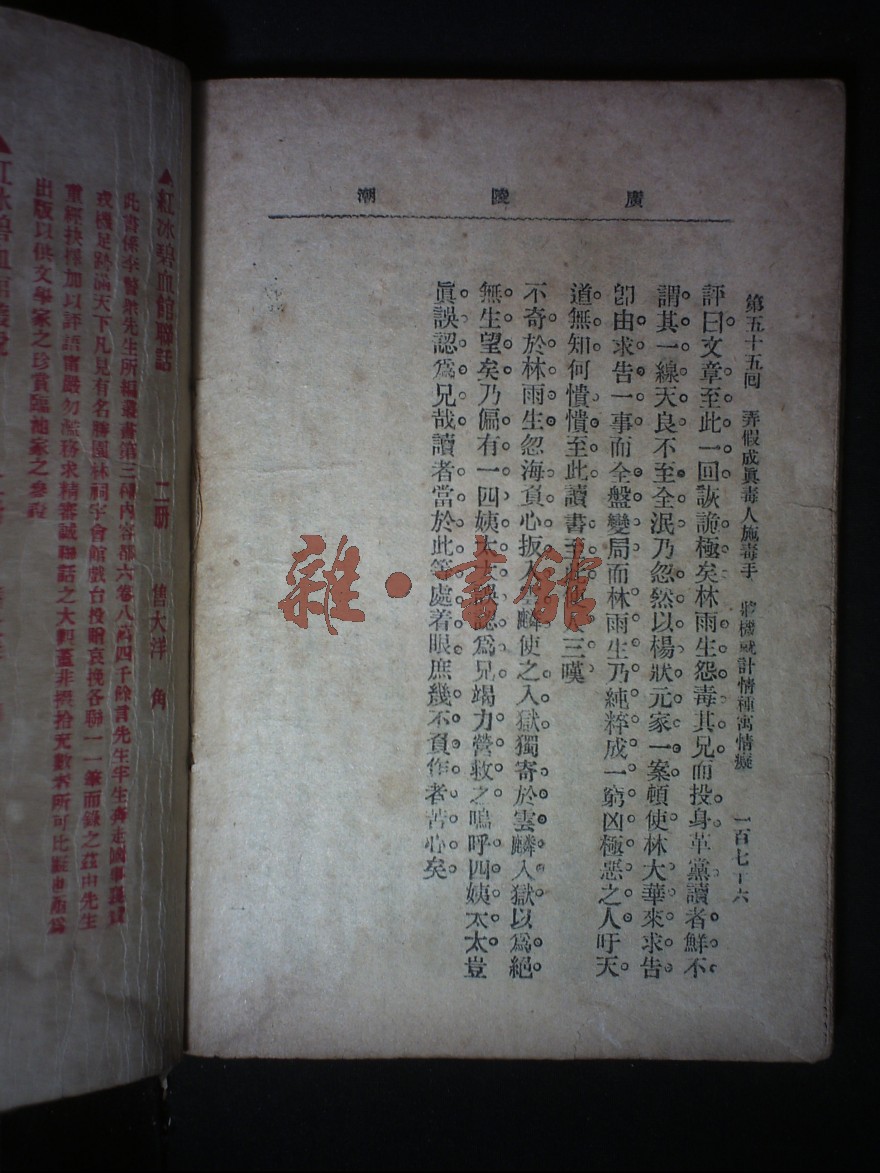 廣陵潮
第五十五回　弄假成眞毒人施毒手　將機就計情種寓情癡　一百七十六
評曰文章至此一回詼詭極矣林雨生怨毒其兄而投身革黨讀者鮮不
謂其一線天良不至全泯乃忽然以楊狀元家一案頓使林大華來求告
卽由求告一事而全盤變局而林雨生乃純粹成一窮凶極惡之人吁天
道無知何憒憒至此讀書至此使人三嘆
不奇於林雨生忽海負心扳入雲麟使之入獄獨寄於雲麟入獄以爲絕
無生望矣乃偏有一四姨太太誤認爲兄竭力營救之嗚呼四姨太太豈
眞誤認爲兄哉讀者當於此等處着眼庶幾不負作者苦心矣
雜·書館
▲紅冰碧血館聯話　二册　售大洋　角
此書係李警衆先生所編叢書第三種內容都六卷八萬四千餘言先生半生奔走國事
戎機足跡滿天下凡見有名勝園林祠宇會館戲台投贈哀挽各聯一一筆而錄之茲由先生
重經抉擇加以評語甯嚴勿濫務求精審誠聯話之大觀
出版以供文學家之珍賞臨池家之參
▲紅冰碧血館